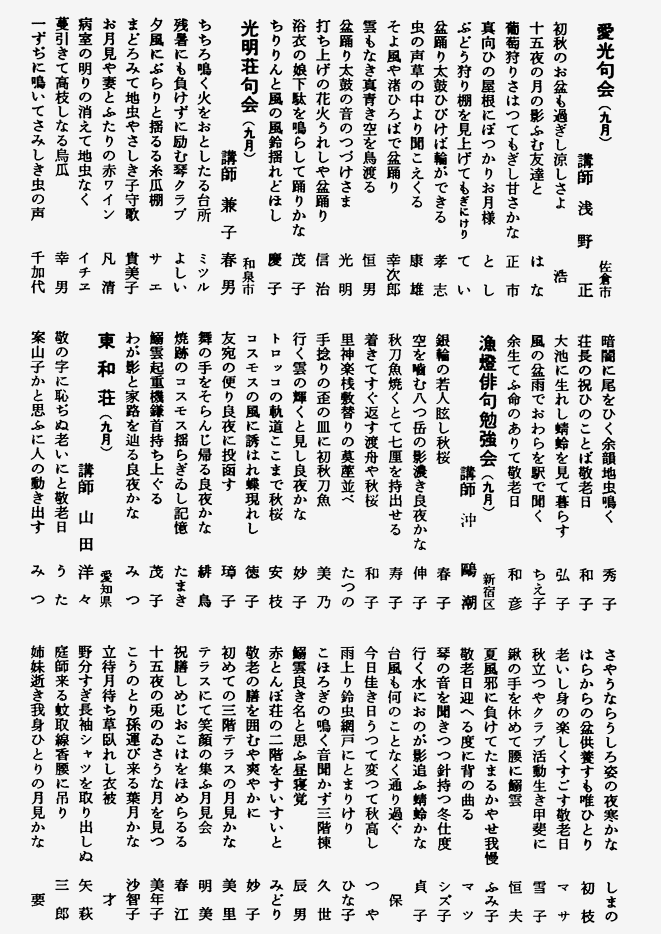 愛光句会（九月）
佐倉市
講師 浅野 正
初秋のお盆も過ぎし涼しさよ 浩
十五夜の月の影ふむ友達と はな
葡萄狩りさはつてもぎし甘さかな 正市
真向ひの屋根にぽつかりお月様 とし
ぶどう狩り棚を見上げてもぎにけり てい
盆踊り太鼓ひびけば輪ができる 孝志
虫の声草の中より聞こえくる 康雄
そよ風や渚ひろばで盆踊り 幸次郎
雲もなき真青き空を鳥渡る 恒男
盆踊り太鼓の音のつづけさま 光明
打ち上げの花火うれしや盆踊り 信治
浴衣の娘下駄を鳴らして踊りかな 茂子
ちりりんと風の風鈴揺れどほし 慶子
光明荘句会（九月）
和泉市
講師 兼子 春男
ちちろ鳴く火をおとしたる台所 ミツル
残暑にも負けずに励む琴クラブ よしい
夕風にぶらりと揺るる糸瓜棚 サエ
まどろみて地虫やさしき子守歌 貴美子
お月見や妻とふたりの赤ワイン 凡清
病室の明りの消えて地虫なく イチヱ
蔓引きて高枝しなる烏瓜 幸男
一ずぢに鳴いてさみしき虫の声 千加代
暗闇に尾をひく余韻地虫鳴く 秀子
荘長の祝ひのことば敬老日 和子
大池に生れし蜻蛉を見て暮らす 弘子
風の盆雨でおわらを駅で聞く ちえ子
余生てふ命のありて敬老日 和彦
漁燈俳句勉強会（九月）
新宿区
講師 沖 鷗潮
銀輪の若人眩し秋桜 春子
空を噛む八つ岳の影濃き良夜かな 伸子
秋刀魚焼くとて七厘を持出せる 寿子
着きてすぐ返す渡舟や秋桜 和子
里神楽桟敷替りの茣蓙並べ たつの
手捻りの歪の皿に初秋刀魚 美乃
行く雲の輝くと見し良夜かな 妙子
トロッコの軌道ここまで秋桜 安枝
コスモスの風に誘はれ蝶現れし 徳子
友宛の便り良夜に投函す 璋子
舞の手をそらんじ帰る良夜かな 緋鳥
焼跡のコスモス揺らぎゐし記憶 たまき
鰯雲起重機鎌首持ち上ぐる 茂子
わが影と家路を辿る良夜かな みつ
東和荘（九月）
愛知県
講師 山田 洋々
敬の字に恥ぢぬ老いにと敬老日 うた
案山子かと思ふに人の動き出す みつ
さやうならうしろ姿の夜寒かな しまの
はらからの盆供養すも唯ひとり 初枝
老いし身の楽しくすごす敬老日 マサ
秋立つやクラブ活動生き甲斐に 雪子
鍬の手を休めて腰に鰯雲 恒夫
夏風邪に負けてたまるかやせ我慢 ふみ子
敬老日迎へる度に背の曲る マツ
琴の音を聞きつつ針持つ冬仕度 シズ子
行く水におのが影追ふ蜻蛉かな 貞子
台風も何のことなく通り過ぐ 保
今日佳き日うつて変つて秋高し つや
雨上り鈴虫網戸にとまりけり ひな子
こほろぎの鳴く音聞かず三階棟 久世
鰯雲良き名と思ふ昼寝覚 辰男
赤とんぼ荘の二階をすいすいと みどり
敬老の膳を囲むや爽やかに 妙子
初めての三階テラスの月見かな 美里
テラスにて笑顔の集ふ月見会 明美
祝膳しめじおこはをほめらるる 春江
十五夜の兎のゐさうな月を見つ 美年子
こうのとり孫運び来る葉月かな 沙智子
立待月待ち草臥れし衣被 才
野分すぎ長袖シャツを取り出しぬ 矢萩
庭師来る蚊取線香腰に吊り 三郎
姉妹逝き我身ひとりの月見かな 要